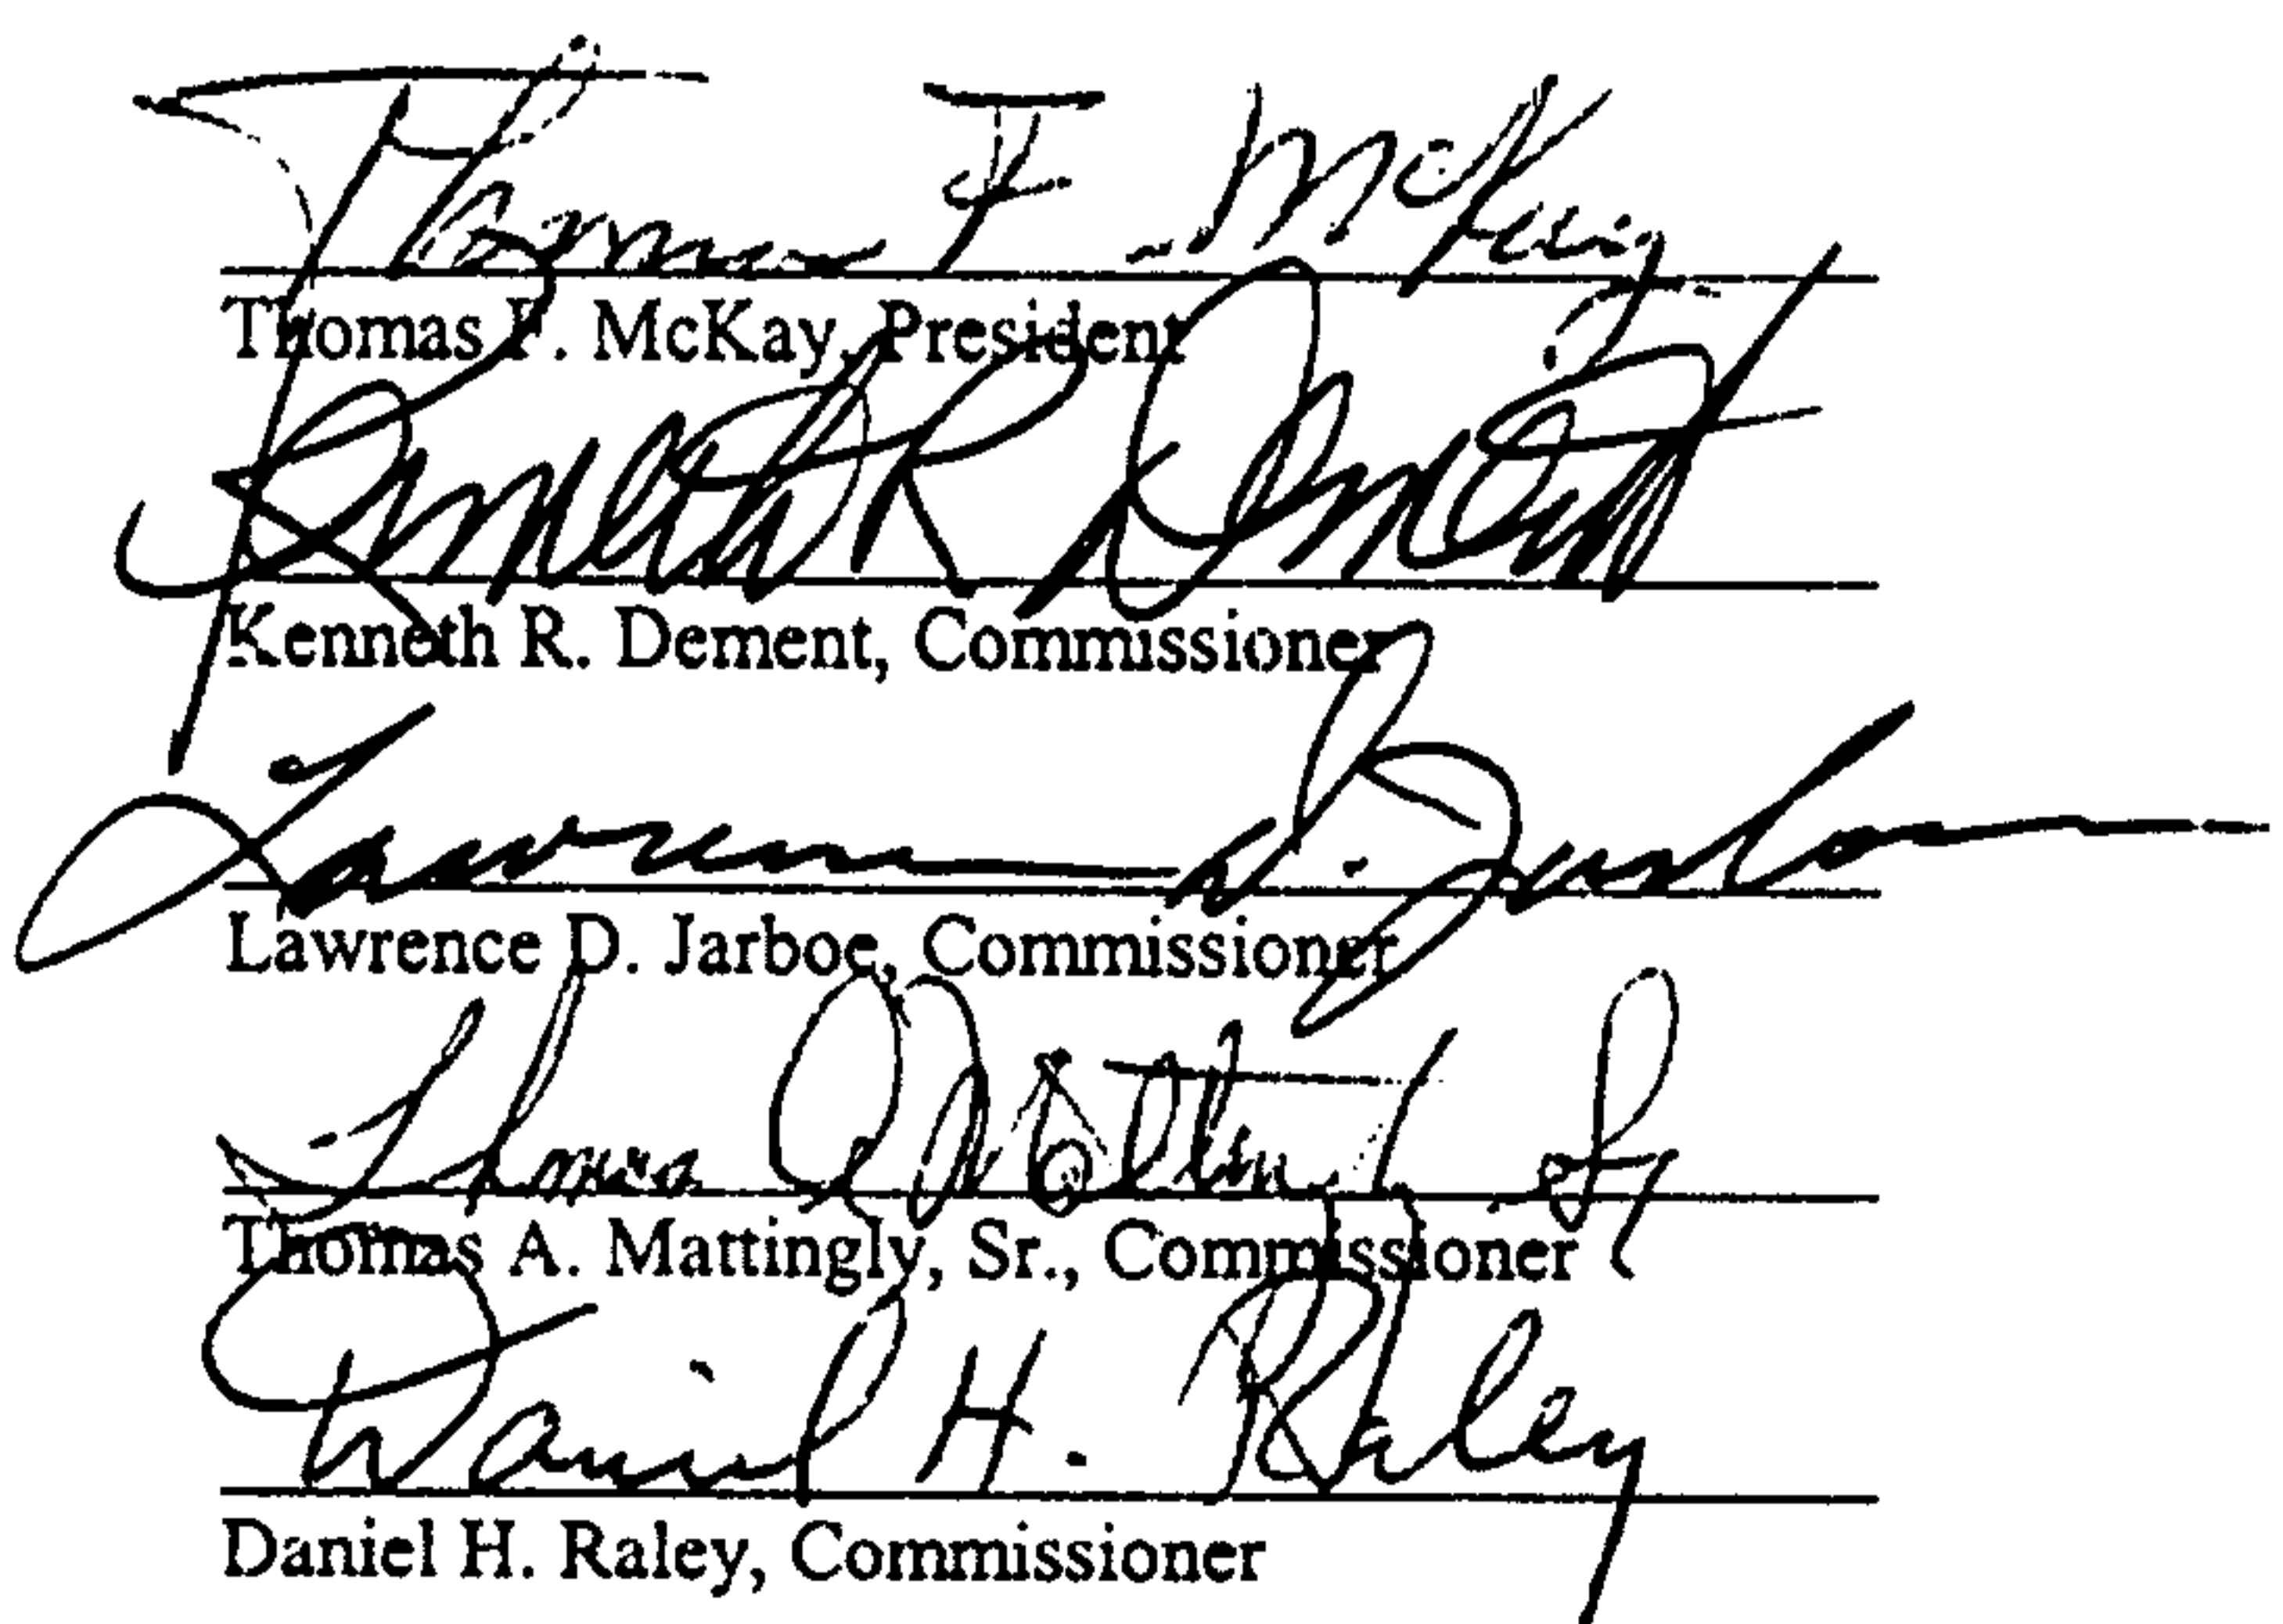 Thomas F. McKay
Thomas F. McKay, President
Kenneth R Dement
Kenneth R. Dement, Commissioner
Lawrence D. Jarboe
Lawrence D. Jarboe, Commissioner
Thomas A Mattingly Sr
Thomas A. Mattingly, Sr., Commissioner
Daniel H. Raley
Daniel H. Raley, Commissioner